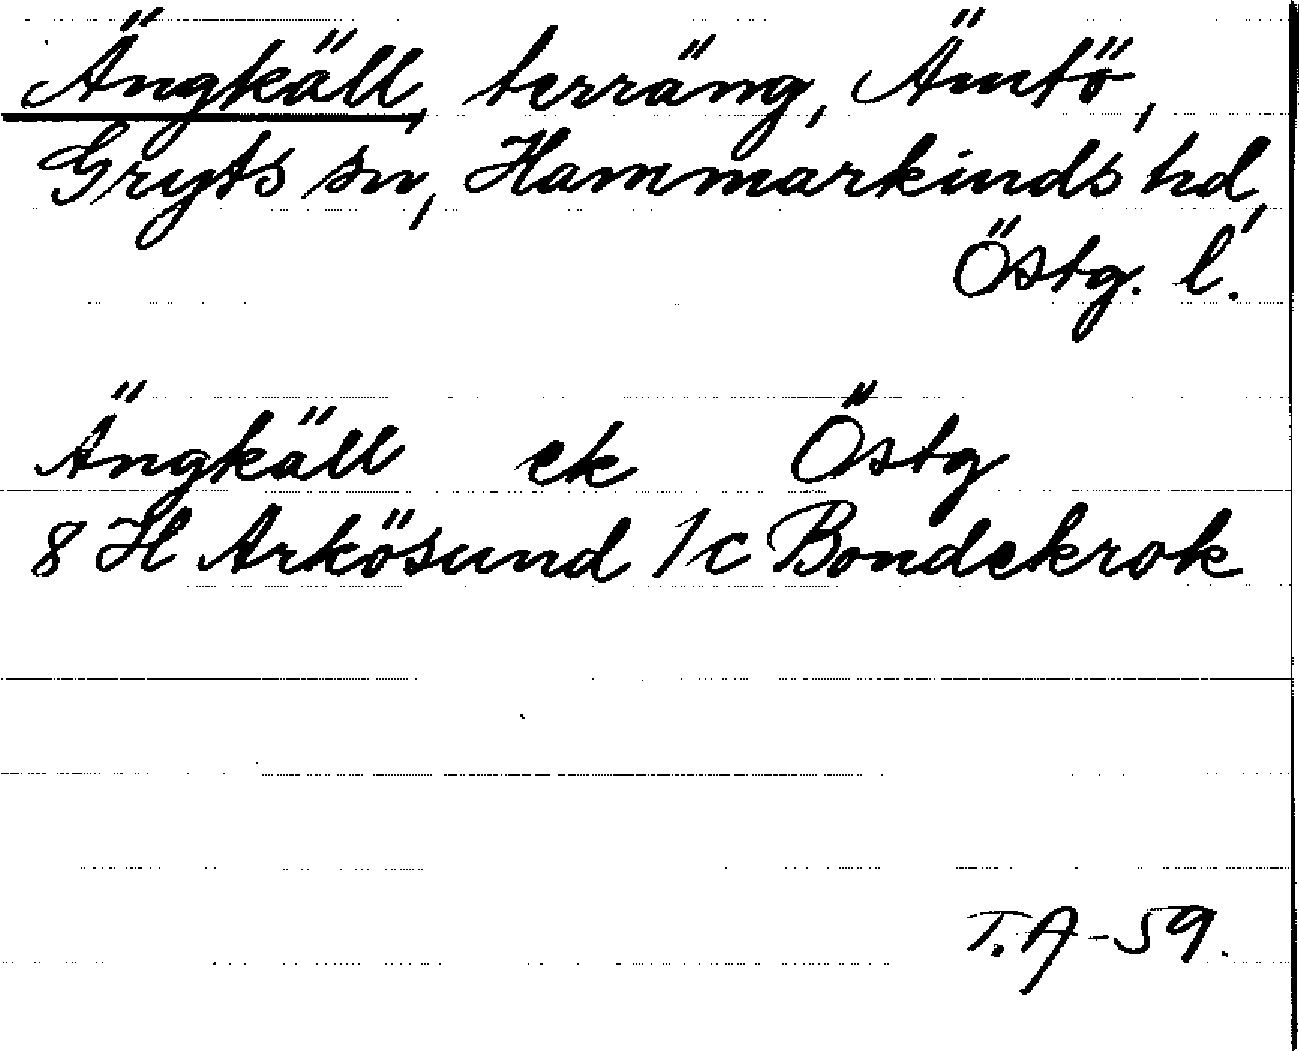 Ängkäll, terräng, Ämtö,
Gryts sn, Hammarkinds hd,
Östg. l.
Ängkäll ek Östg
8 H Arkösund 1c Bondekrok
T.A-59.